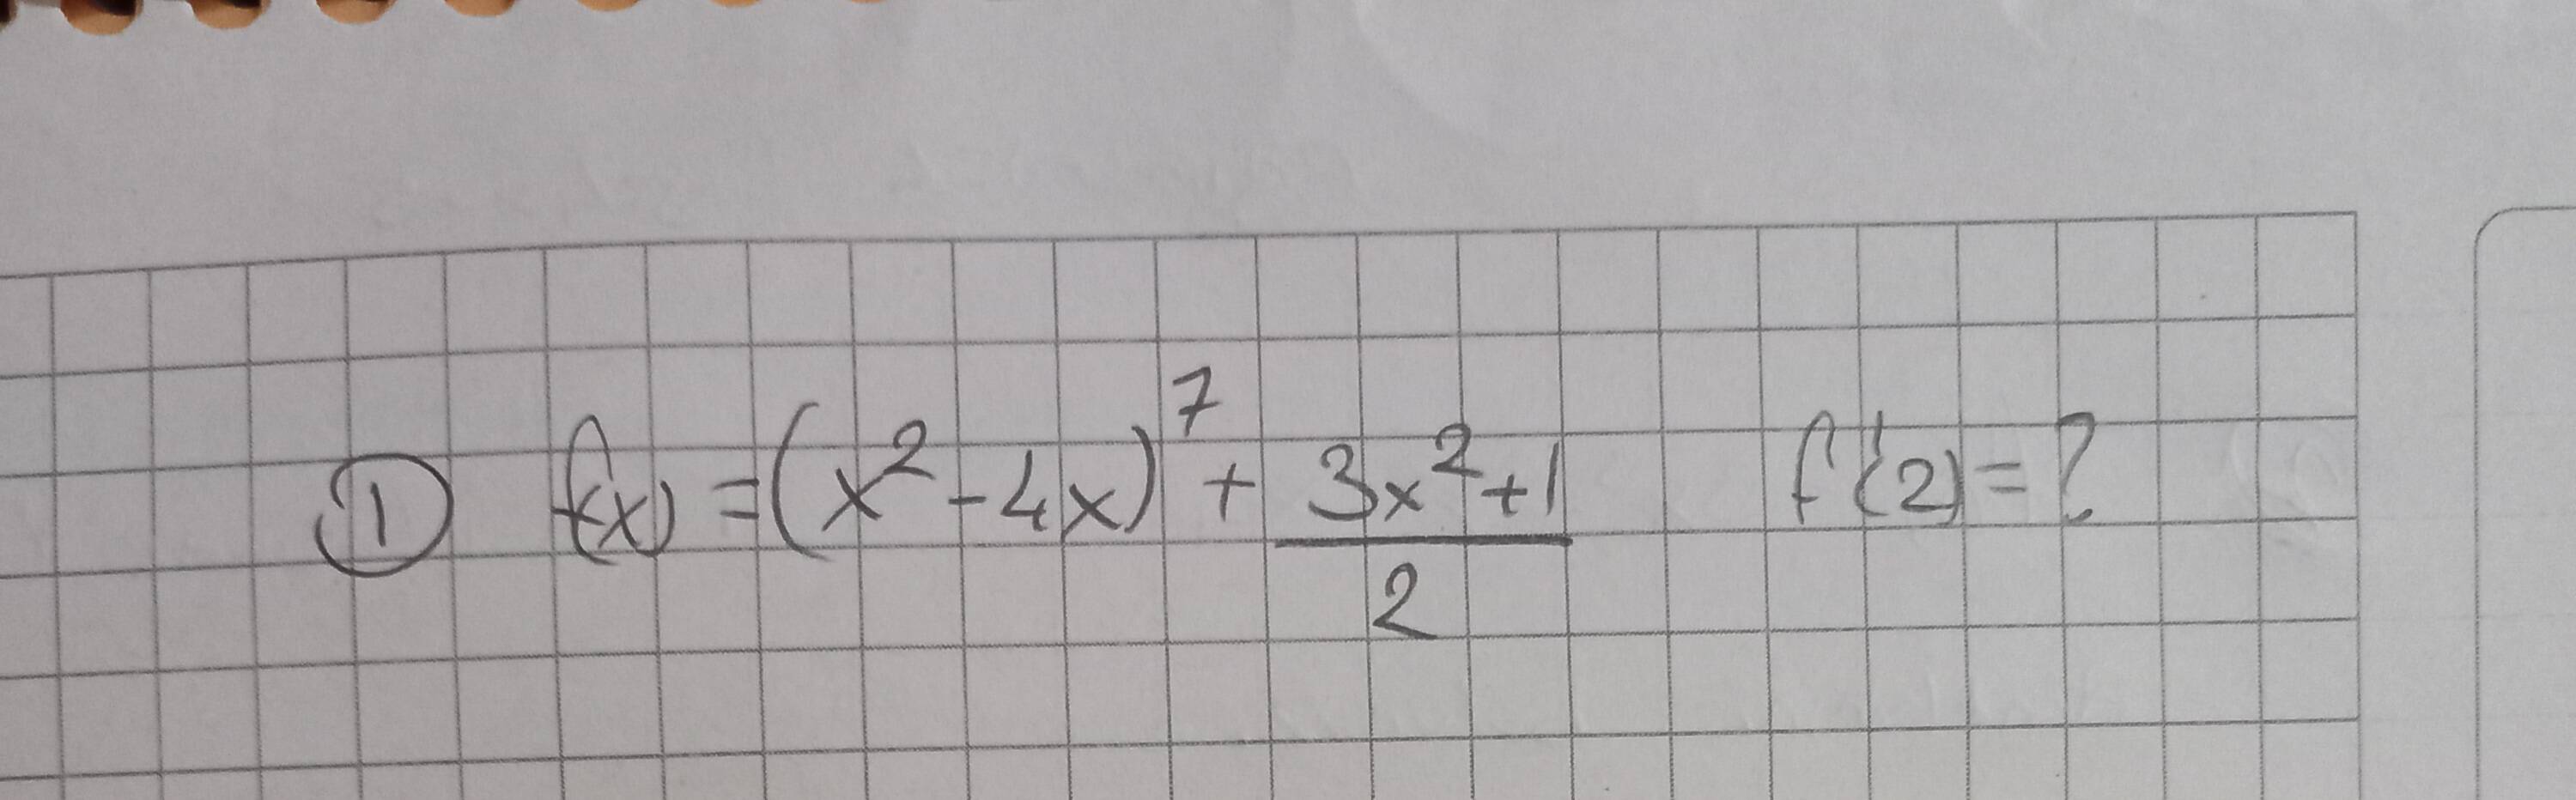 ① f(x) = (x² - 4x)⁷ + (3x² + 1)/2 f'(2) = ?